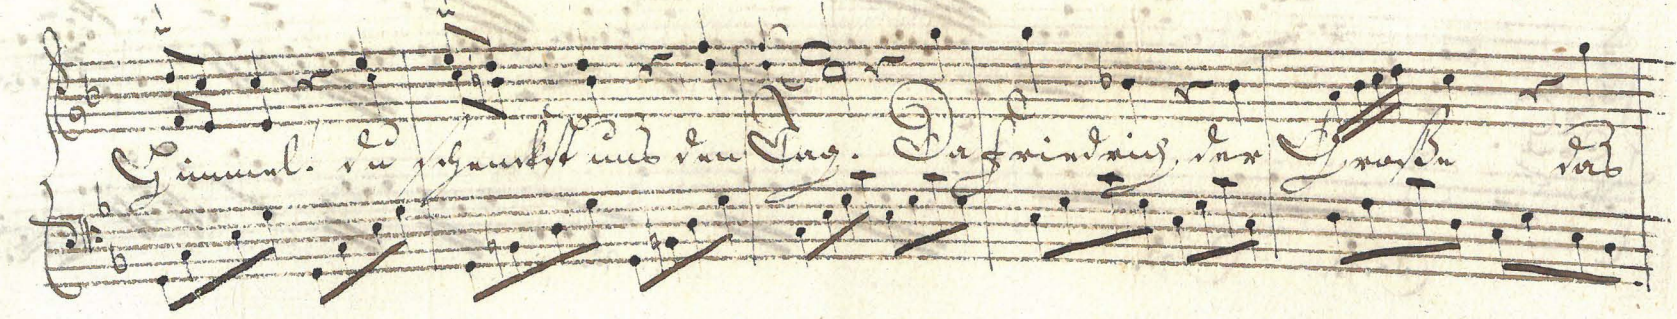 Himmel. du schenckst uns den Tag. Da Friedrich, der Große das